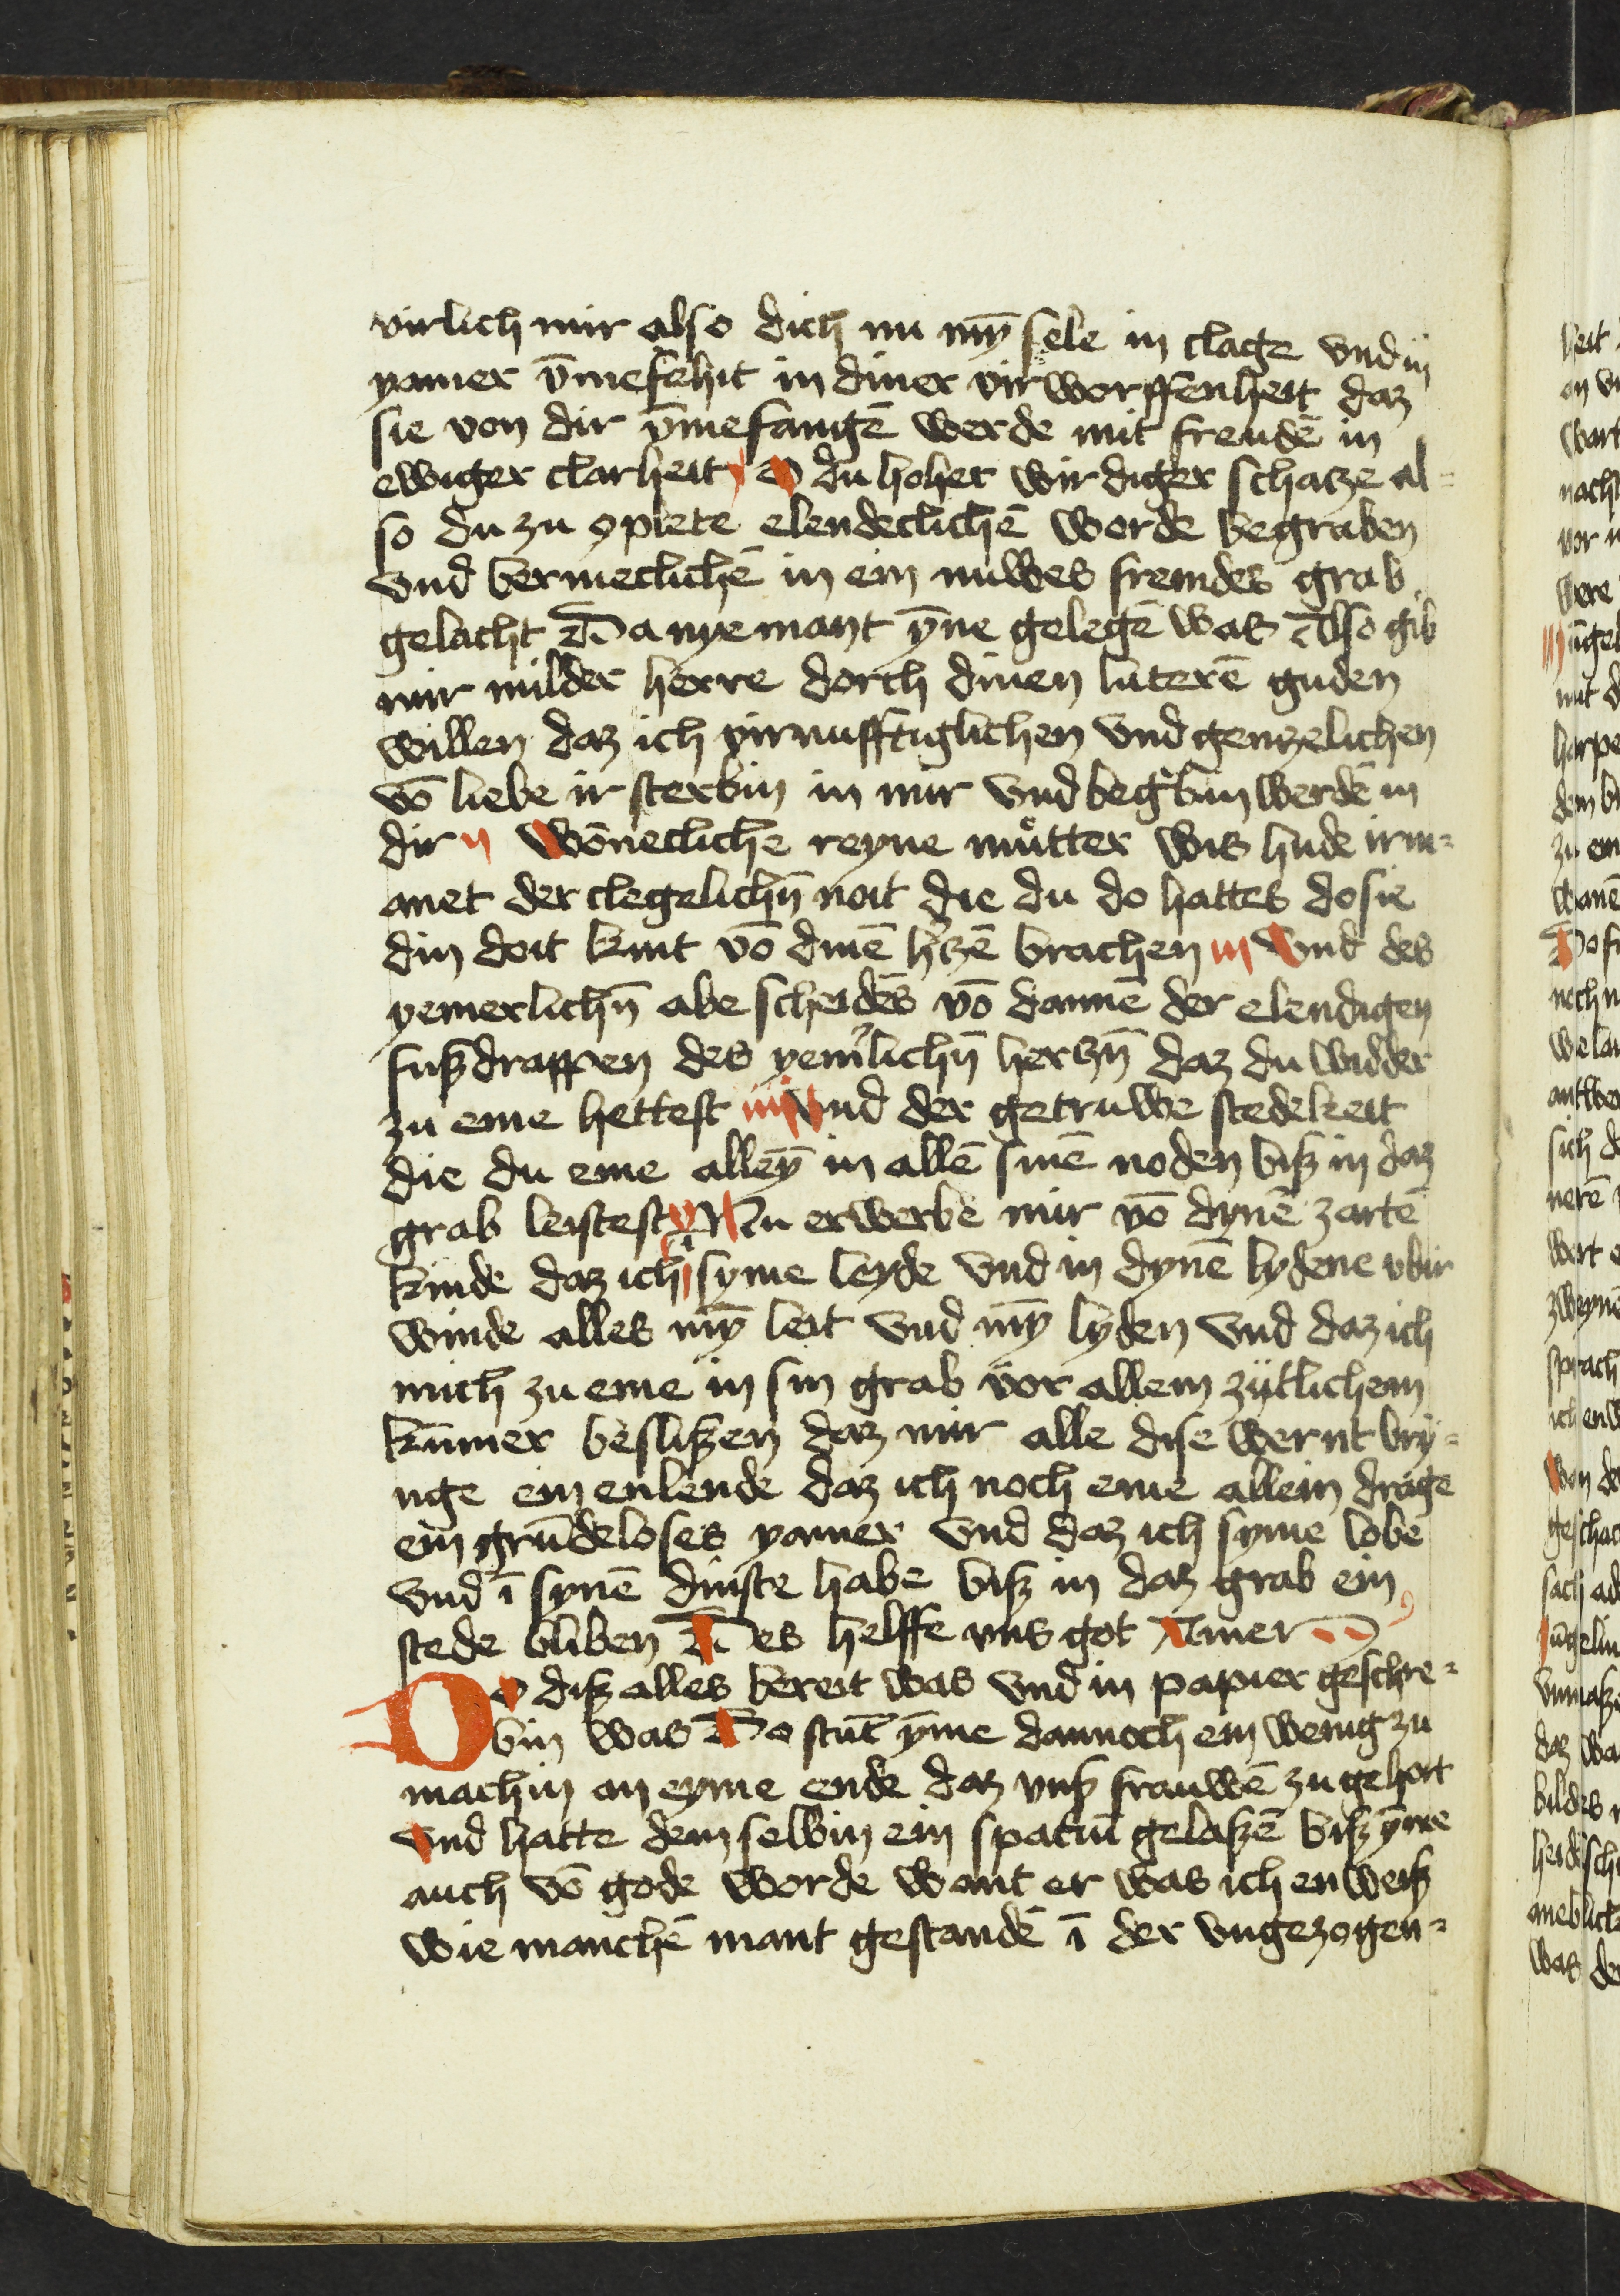 virlich mir also dich nu mȳ sele in clage vnd in
yamer v̄mefehit in diner virworffenheit daz
sie von dir v̄mefangē werde mit freudē in
ewiger clarheit j O du hoher wirdiger schatze al=
so du zu 9plete elendeclichē worde begraben
vnd bermeclichē in ein nuwes fremdes grab
gelacht Da nyemant ȳne gelegē was Also gib
mir milder herre dorch dinen luterē guden
willen daz ich virnufftiglichen vnd gentzelichen
vō liebe ir sterbin in mir vnd begrabin werdē in
dir ij Wōnecliche reyne mutter wis hude irm=
anet der clegelichn̄ noit die du do hattes do sie
din doit kint vō dinē h'tzē brachen iij Vnd des
yemerlichn̄ abe scheidēs vō dannē der elendigen
fuszdrappen des yem'lichn̄ hertzn̄ daz du widder
zu eme hettest iiij Vnd der getruwe stedekeit
die du eme alleȳ in allē sinē noden bisz in daz
grab leistest v Nu erwerbe mir vō dynē zartē
kinde daz ich i syme leyde vnd in dynē lydene vbir
winde alles mȳ leit vnd mȳ lyden vnd daz ich
mich zu eme in sin grab vor allem zijtlichem
kūmer besliszen daz mir alle dise wernt bry=
nge ein enlende daz ich noch eme allein drage
ein grūdeloses yamer vnd daz ich syme lobe
vnd ī synē dinste habe bisz in daz grab ein
stede bliben Des helffe vns got Amen
Do disz alles bereit was vnd in papier geschre=
bin was Do stūt ȳme dannoch ein wenig zu
machin an eyme ende daz vnsz frauwē zu gehort
vnd hatte dem selbin ein spatiū gelaszē bisz ȳme
auch vō gode worde want er was ich enweisz
wie manchē mant gestandē ī der vngezogen=